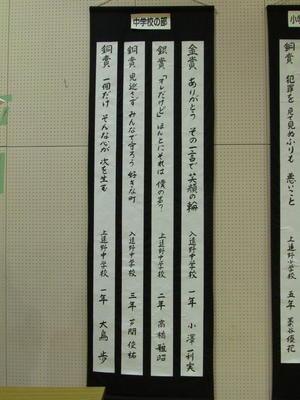 中学校の部
金賞 ありがとう その一言で 笑顔の輪 上遠野中学校 一年 小澤一利実
銀賞 「オレだけど」 ほんとにそれは 僕の名? 上遠野中学校 二年 高橋
銅賞 見逃さず みんなで守ろう 好きな町 入遠野中学校 三年 戸間俊祐
銅賞 一個だけ そんな心が 次を生む 上遠野中学校 一年 大鳥 歩
銅賞 犯罪を 見て見ぬふりも 悪いこと 上遠野小学校 五年